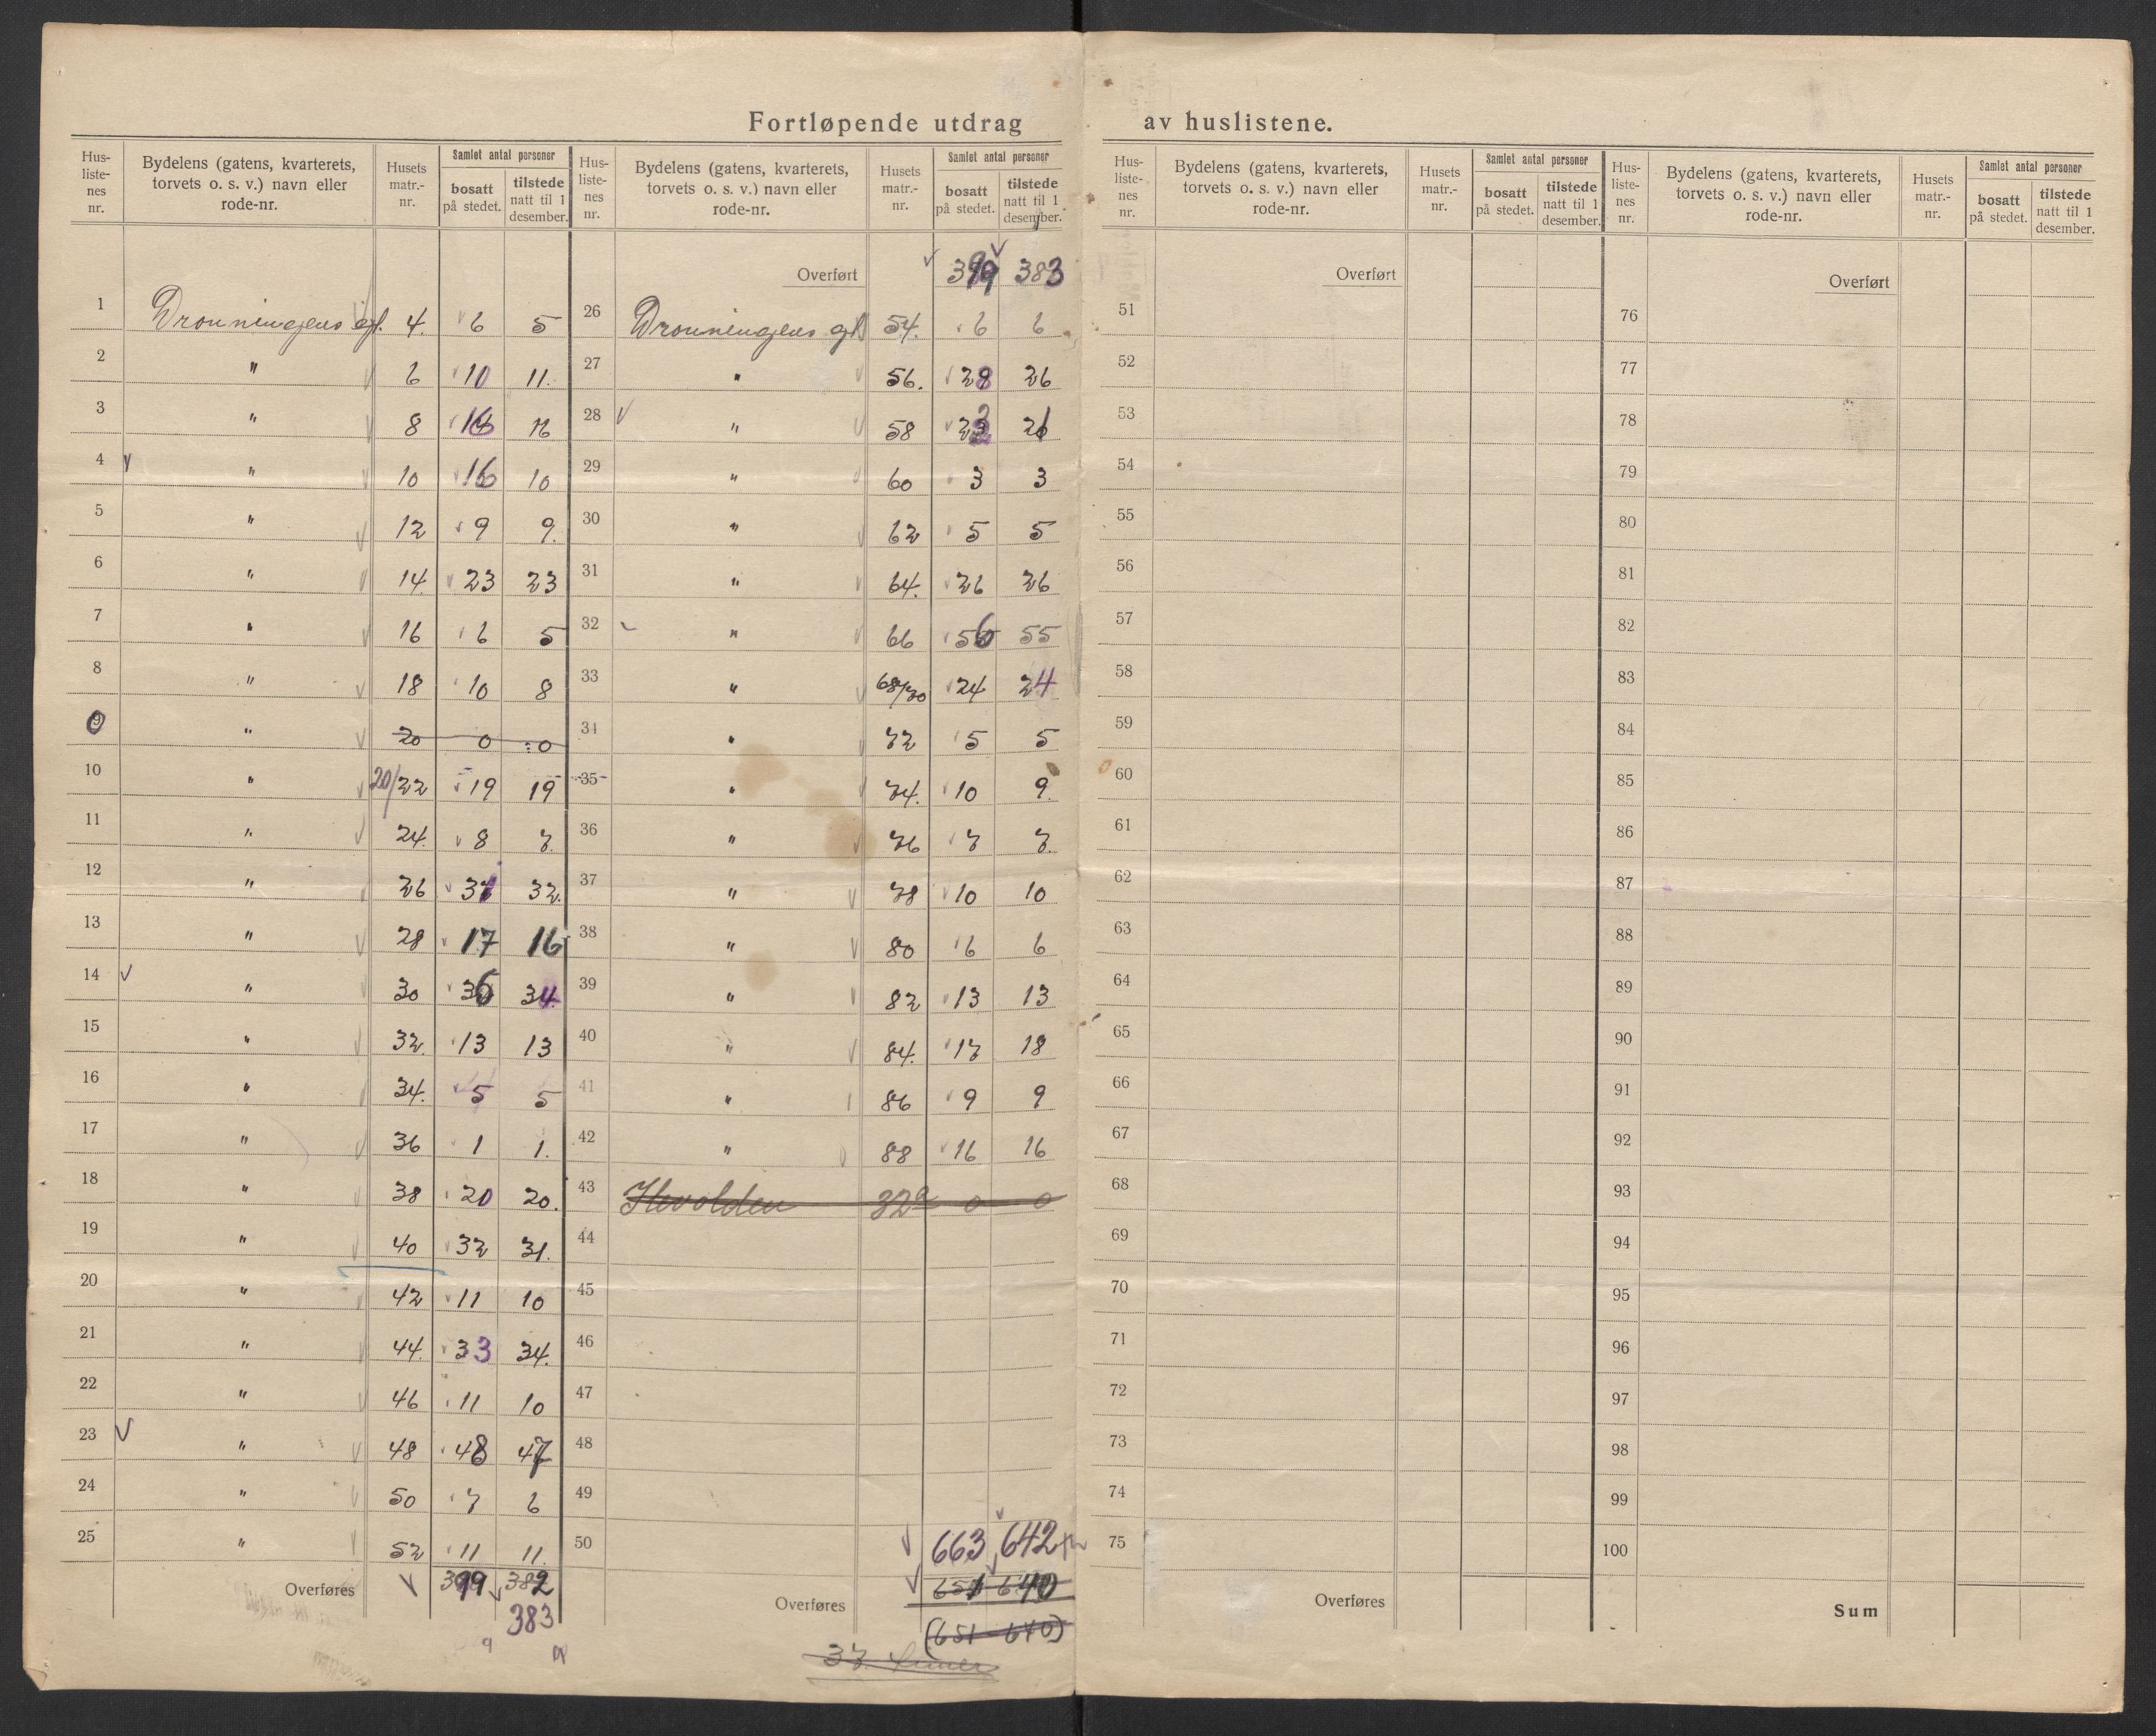 Fortløpende utdrag av huslistene.
Hus-liste-nes nr. | Bydelens (gatens, kvarterets, torvets o. s. v.) navn eller rode-nr. | Husets matr.-nr. | Samlet antal personer | bosatt på stedet. | tilstede natt til 1 desember.
1 Dronningens gt. 4. 6 5
2 " 6 10 11.
3 " 8 16 16
4 " 10 16 10
5 " 12 9 9.
6 " 14. 23 23
7 " 16 6 5
8 " 18 10 8
9 " 20 0 0
10 " 20/22 19 19
11 " 24. 8 7.
12 " 26 31 32.
13 " 28 17 16
14 " 30 36 34.
15 " 32. 13 13
16 " 34. 5 5
17 " 36 1 1.
18 " 38 20 20.
19 " 40 32 31.
20 " 42 11 10
21 " 44. 33 34.
22 " 46 11 10
23 " 48 48 47
24 " 50 7 6
25 " 52 11 11.
Overføres 399 382
383
Hus-liste-nes nr. | Bydelens (gatens, kvarterets, torvets o. s. v.) navn eller rode-nr. | Husets matr.-nr. | Samlet antal personer | bosatt på stedet. | tilstede natt til 1 desember.
Overført 399 383
26 Dronningens gt 54. 6 6
27 " 56. 28 26
28 " 58 23 21
29 " 60 3 3
30 " 62 5 5
31 " 64. 26 26
32 " 66 56 55
33 " 68/70 24 24
34 " 72 5 5
35 " 74. 10 9.
36 " 76 7 7.
37 " 78 10 10
38 " 80 6 6
39 " 82 13 13
40 " 84. 17 18
41 " 86 9 9
42 " 88 16 16
43 Ilevolden 32a 0 0
44
45
46
47
48
49
50
663 642
651 640
Overføres
(651 - 640)
37
Hus-liste-nes nr. | Bydelens (gatens, kvarterets, torvets o. s. v.) navn eller rode-nr. | Husets matr.-nr. | Samlet antal personer | bosatt på stedet. | tilstede natt til 1 desember.
Overført
51
52
53
54
55
56
57
58
59
60
61
62
63
64
65
66
67
68
69
70
71
72
73
74
75
Overføres
Hus-liste-nes nr. | Bydelens (gatens, kvarterets, torvets o. s. v.) navn eller rode-nr. | Husets matr.-nr. | Samlet antal personer | bosatt på stedet. | tilstede natt til 1 desember.
Overført
76
77
78
79
80
81
82
83
84
85
86
87
88
89
90
91
92
93
94
95
96
97
98
99
100
Sum